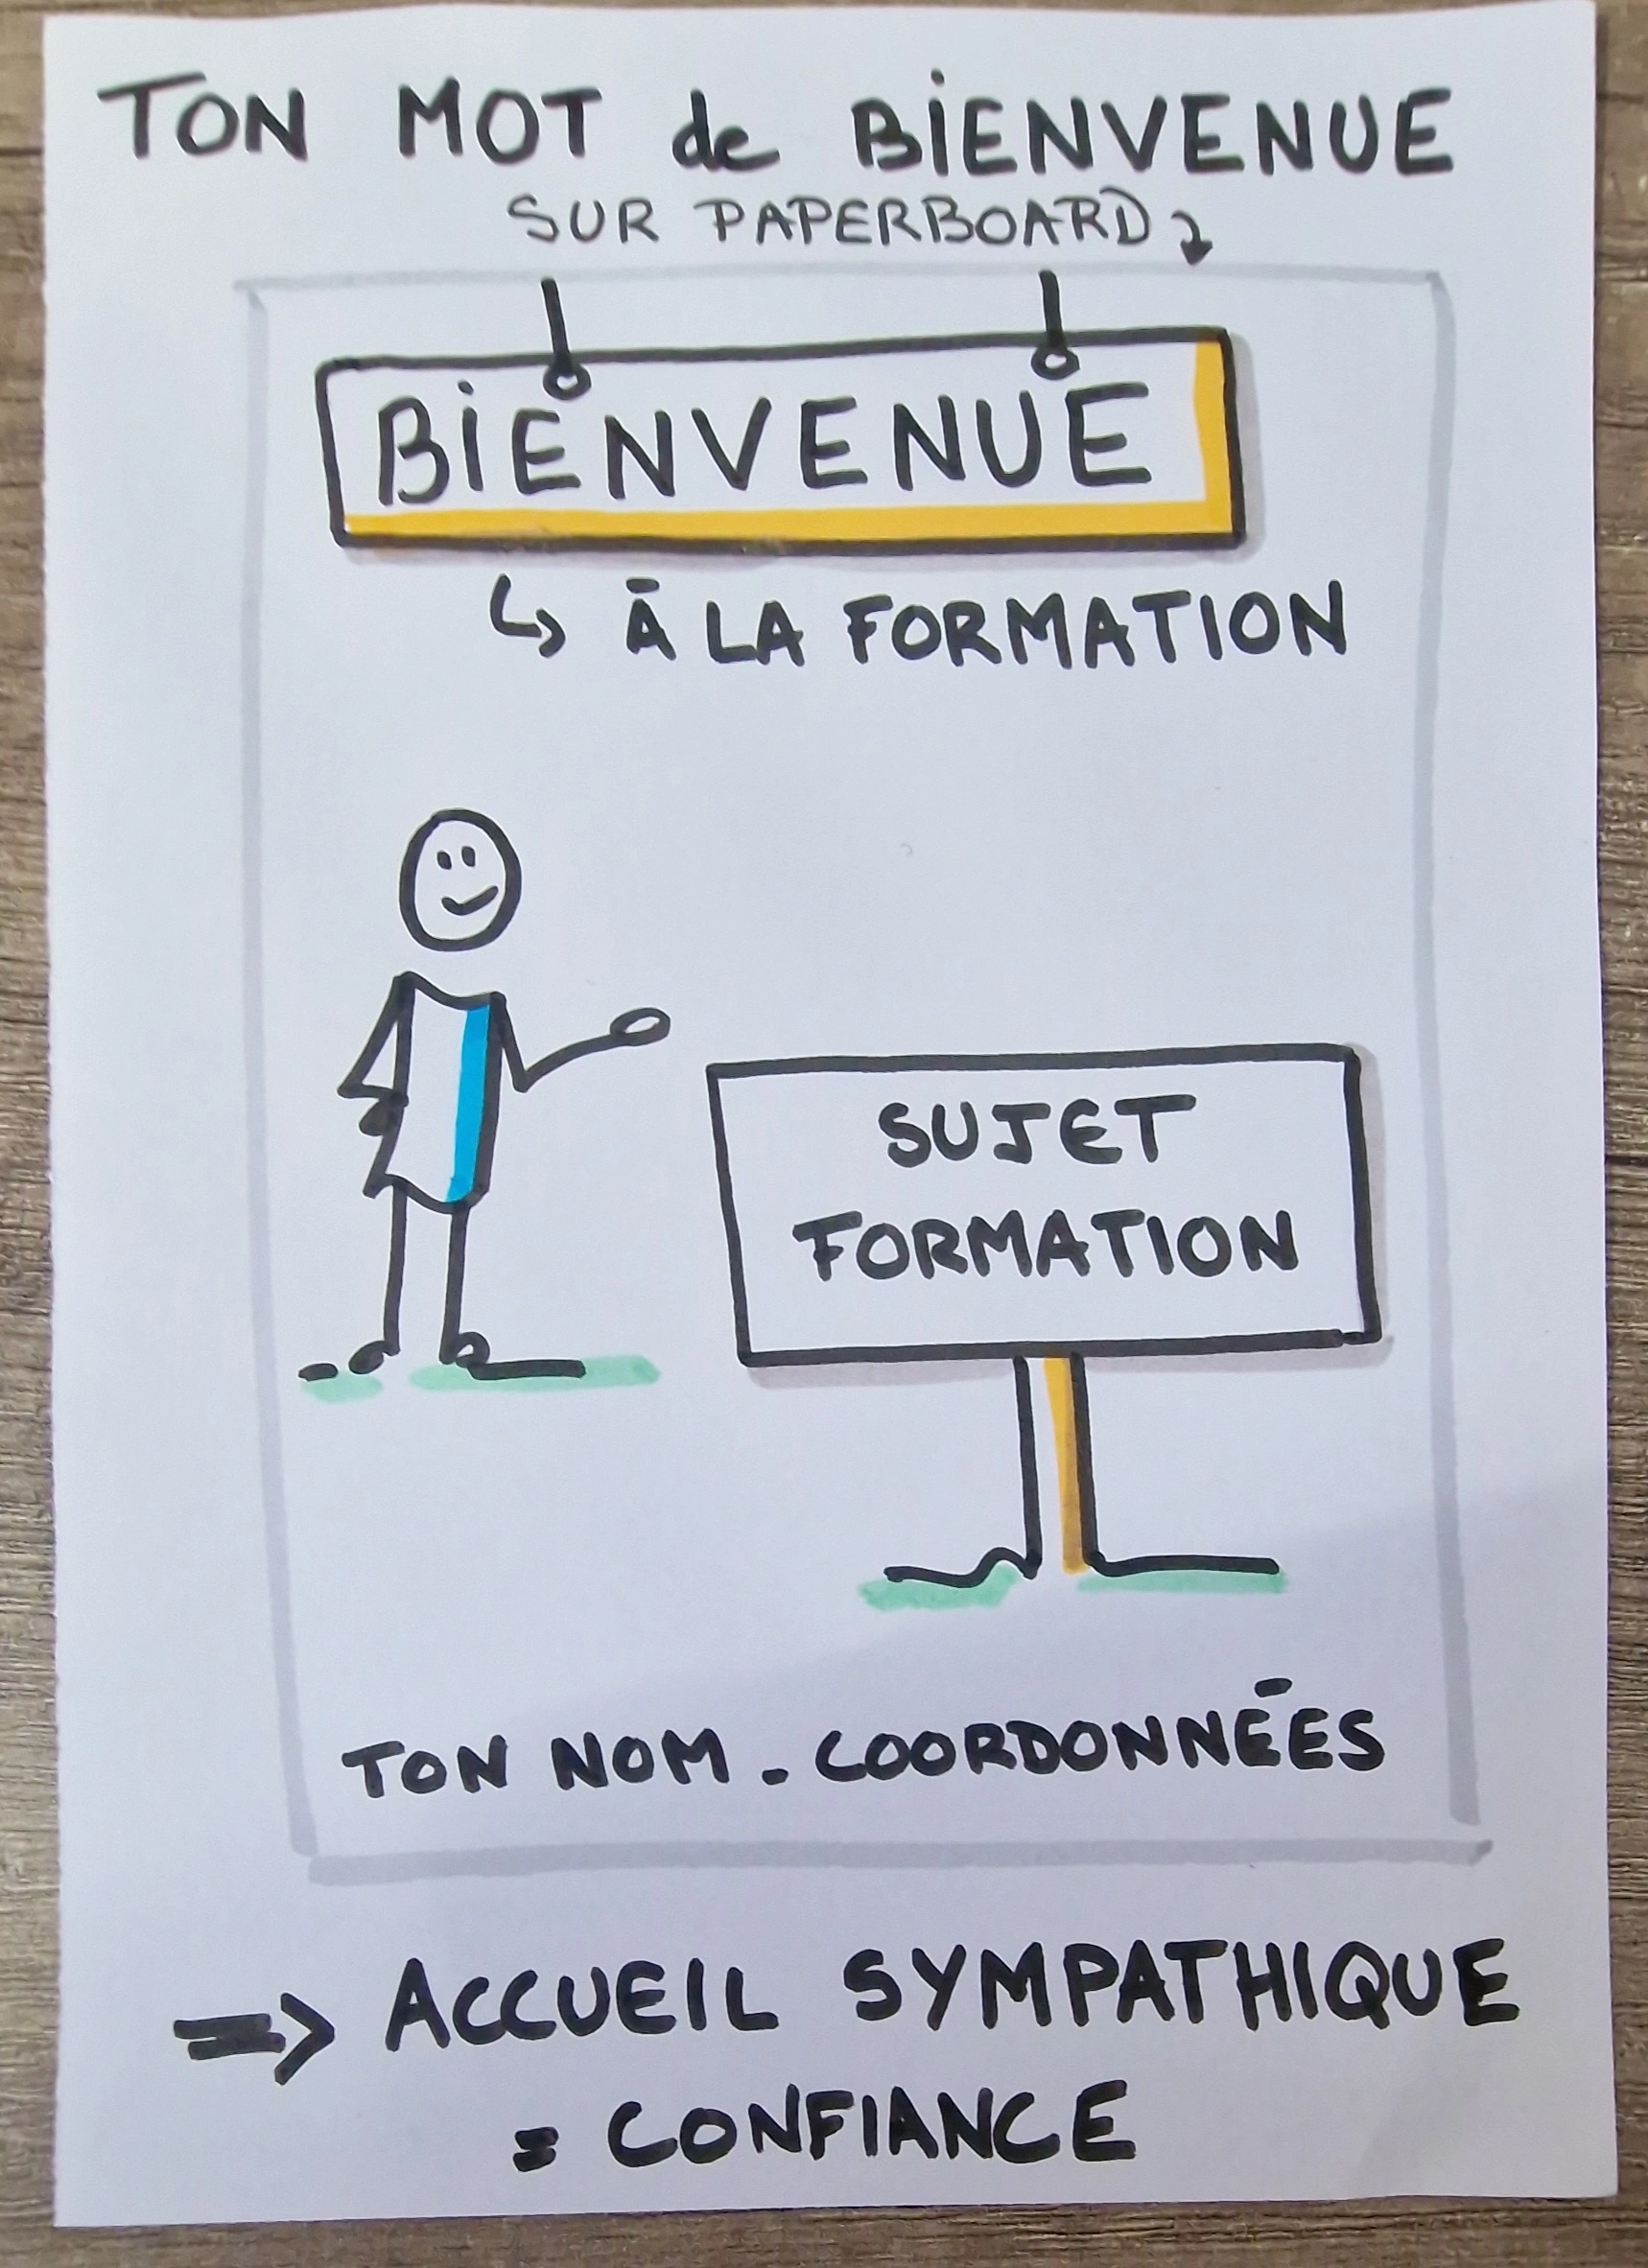 TON MOT de BiENVENUE
SUR PAPERBOARD
BiENVENUE
↳ À LA FORMATION
SUJET
FORMATION
TON NOM - COORDONNÉES
=> ACCUEIL SYMPATHIQUE
= CONFIANCE